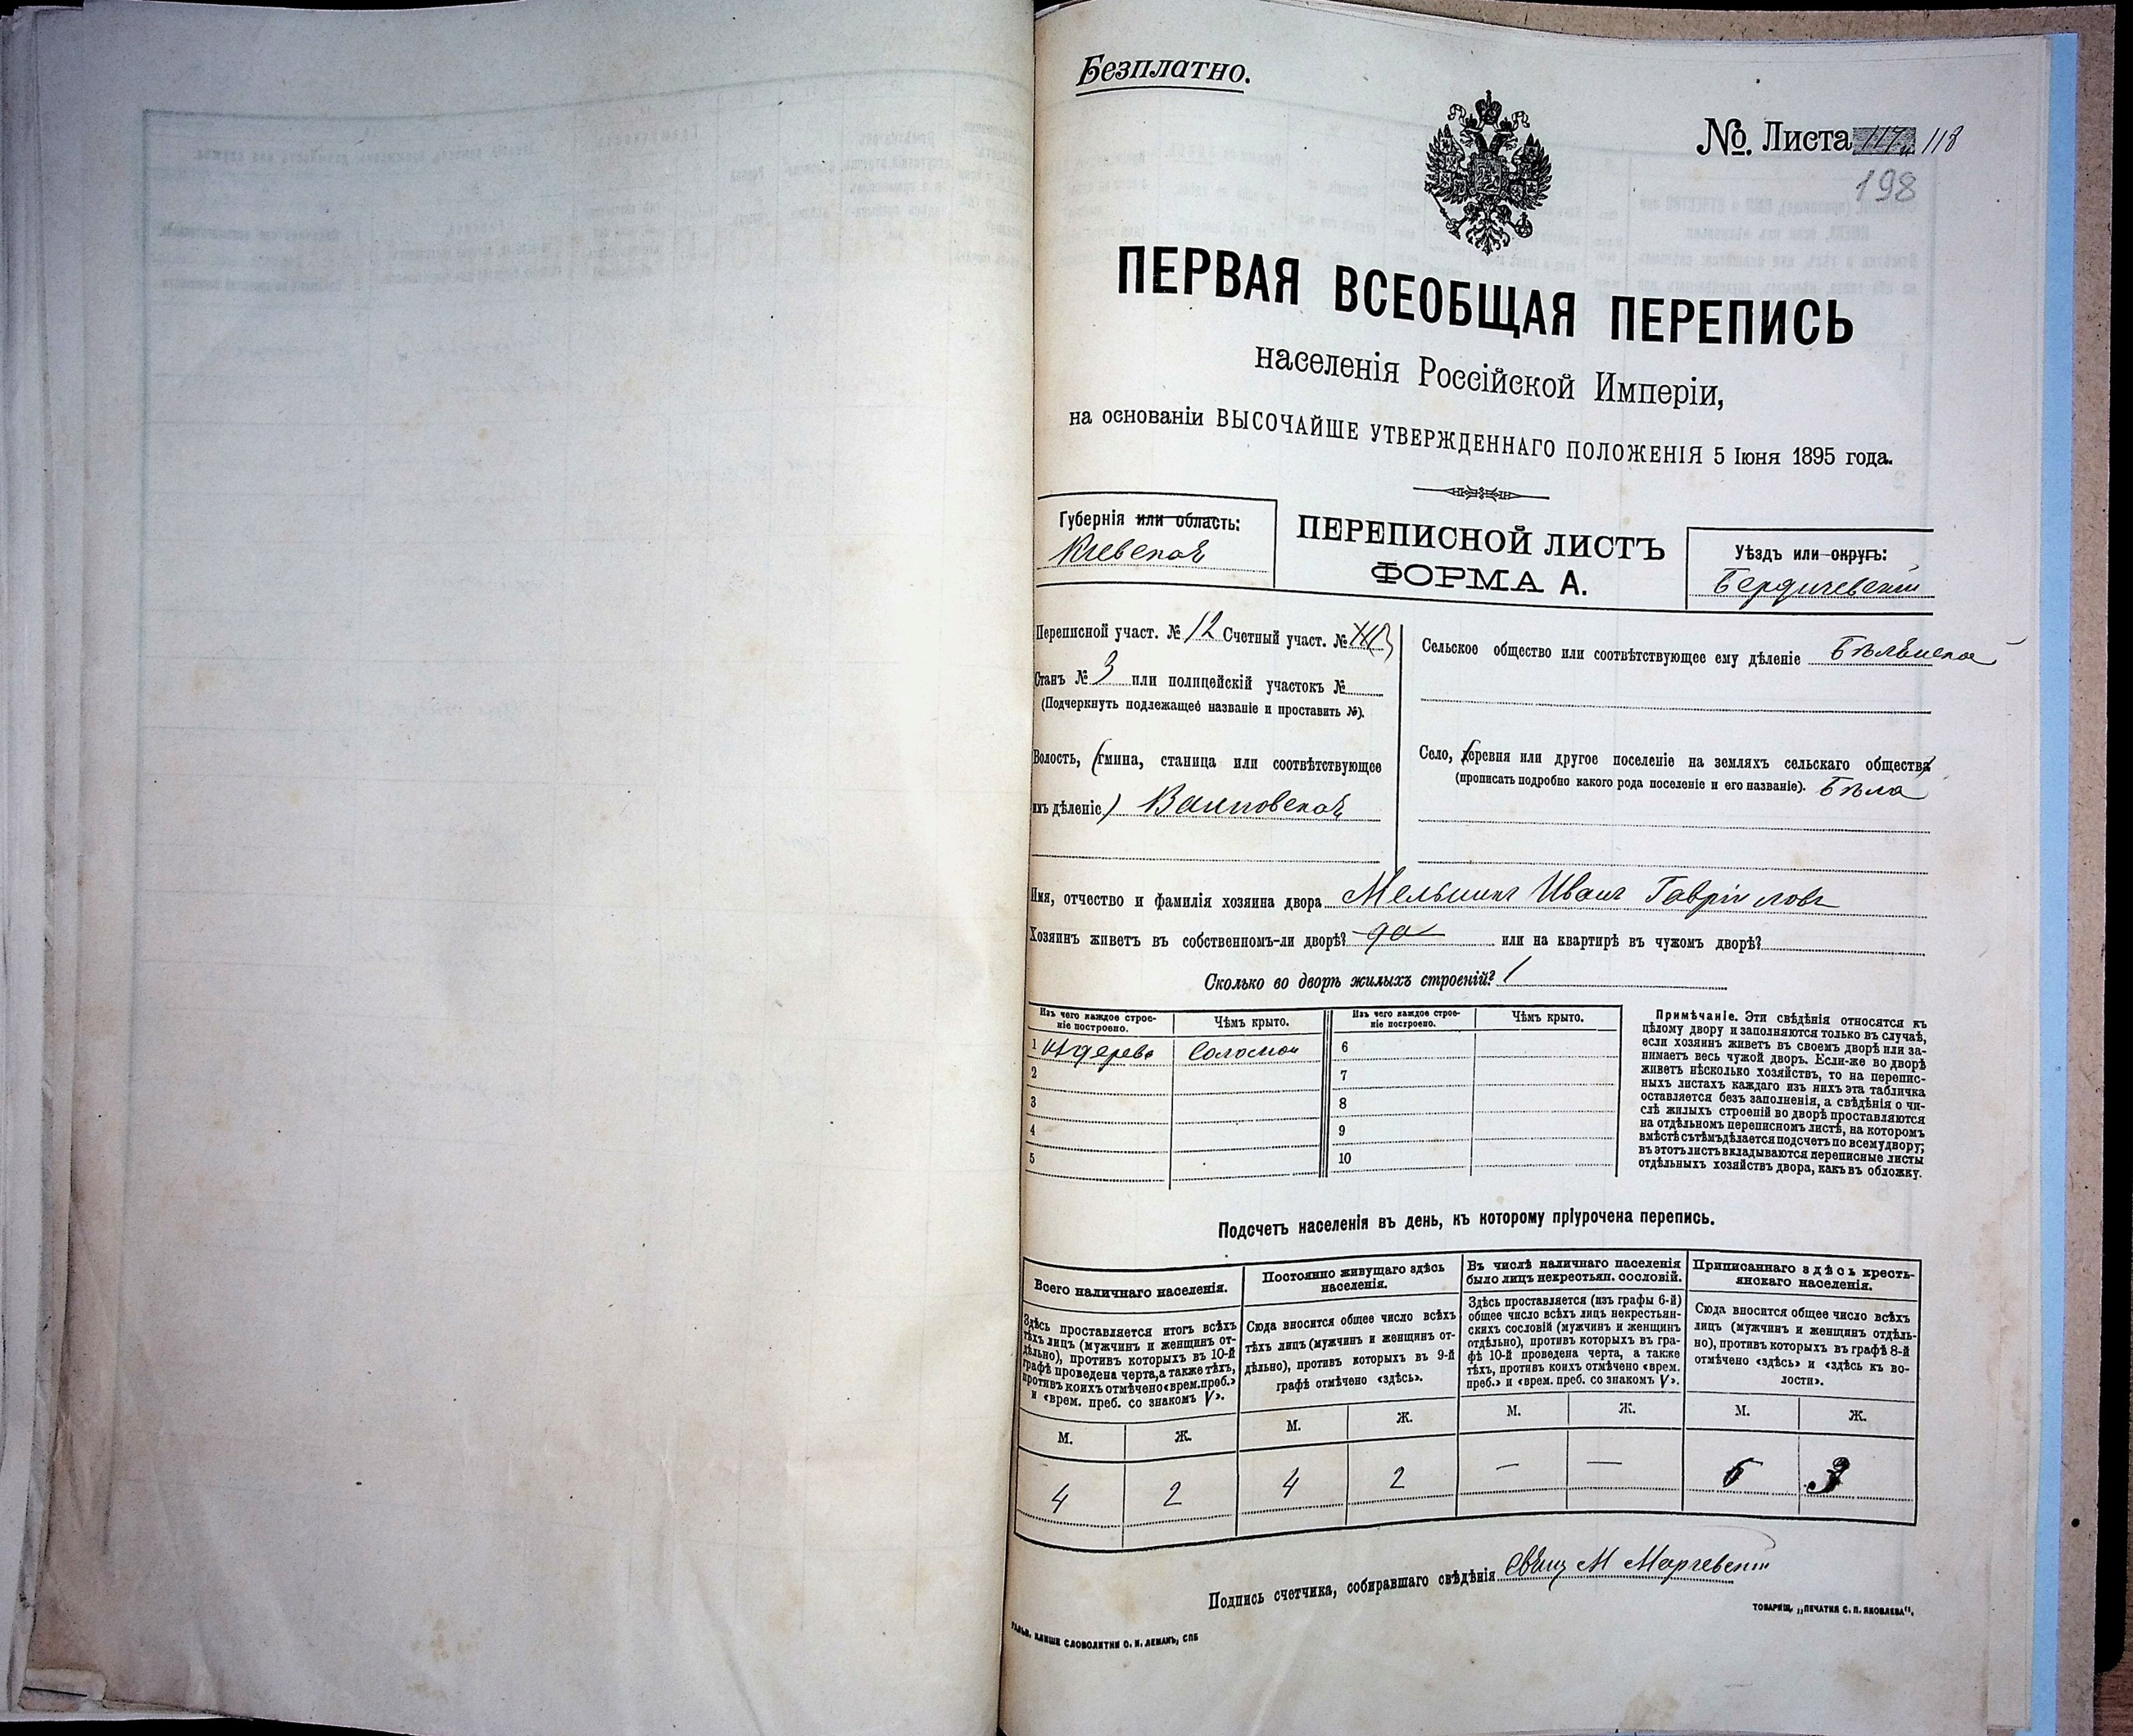 Безплатно.
№. Листа 118
198
ПЕРВАЯ ВСЕОБЩАЯ ПЕРЕПИСЬ
населенія Россійской Имперіи,
на основаніи ВЫСОЧАЙШЕ УТВЕРЖДЕННАГО ПОЛОЖЕНІЯ 5 Іюня 1895 года.
Губернія или область:
Кіевской
ПЕРЕПИСНОЙ ЛИСТЪ
ФОРМА А.
Уѣздъ или округъ:
Бердичевскій
Переписной участ. № 12 Счетный участ. №
Станъ № 3 или полицейскій участокъ №
(Подчеркнуть подлежащее названіе и проставить №).
Волость, (гмина, станица или соотвѣтствующее
имъ дѣленіе)
Сельское общество или соотвѣтствующее ему дѣленіе
Село, деревня или другое поселеніе на земляхъ сельскаго общества
(прописать подробно какого рода поселеніе и его названіе). Бѣла
Имя, отчество и фамилія хозяина двора Мельникъ Иванъ Гавріиловъ
Хозяинъ живетъ въ собственномъ-ли дворѣ? да или на квартирѣ въ чужомъ дворѣ?
Сколько во дворѣ жилыхъ строеній? 1
Изъ чего каждое строе-
ніе построено.
Чѣмъ крыто.
Изъ чего каждое строе-
ніе построено.
Чѣмъ крыто.
1 изъ дерева соломой
2
3
4
5
6
7
8
9
10
Примѣчаніе. Эти свѣдѣнія относятся къ
цѣлому двору и заполняются только въ случаѣ,
если хозяинъ живетъ въ своемъ дворѣ или за-
нимаетъ весь чужой дворъ. Если-же во дворѣ
живетъ нѣсколько хозяйствъ, то на перепис-
ныхъ листахъ каждаго изъ нихъ эта табличка
оставляется безъ заполненія, а свѣдѣнія о чи-
слѣ жилыхъ строеній во дворѣ проставляются
на отдѣльномъ переписномъ листѣ, на которомъ
вмѣстѣ съ тѣмъ дѣлается подсчетъ по всему двору;
въ этотъ листъ вкладываются переписные листы
отдѣльныхъ хозяйствъ двора, какъ въ обложку.
Подсчетъ населенія въ день, къ которому пріурочена перепись.
Всего наличнаго населенія.
Здѣсь проставляется итогъ всѣхъ
тѣхъ лицъ (мужчинъ и женщинъ от-
дѣльно), противъ которыхъ въ 10-й
графѣ проведена черта, а также тѣхъ,
противъ коихъ отмѣчено «врем. преб.»
и «врем. преб. со знакомъ V».
Постоянно живущаго здѣсь
населенія.
Сюда вносится общее число всѣхъ
тѣхъ лицъ (мужчинъ и женщинъ от-
дѣльно), противъ которыхъ въ 9-й
графѣ отмѣчено «здѣсь».
Въ числѣ наличнаго населенія
было лицъ некрестьян. сословій.
Здѣсь проставляется (изъ графы 6-й)
общее число всѣхъ лицъ некрестьян-
скихъ сословій (мужчинъ и женщинъ
отдѣльно), противъ которыхъ въ гра-
фѣ 10-й проведена черта, а также
тѣхъ, противъ коихъ отмѣчено «врем.
преб.» и «врем. преб. со знакомъ V».
Приписаннаго здѣсь кресть-
янскаго населенія.
Сюда вносится общее число всѣхъ
лицъ (мужчинъ и женщинъ отдѣль-
но), противъ которыхъ въ графѣ 8-й
отмѣчено «здѣсь» и «здѣсь къ во-
лости».
М. Ж. М. Ж. М. Ж. М. Ж.
4 2 4 2 — — 6 3
Подпись счетчика, собиравшаго свѣдѣнія
ТОВАРИЩ. „ПЕЧАТНЯ С. П. ЯКОВЛЕВА“.
ГАЛЬВ. КЛИШЕ СЛОВОЛИТНИ О. И. ЛЕМАНЪ, СПБ